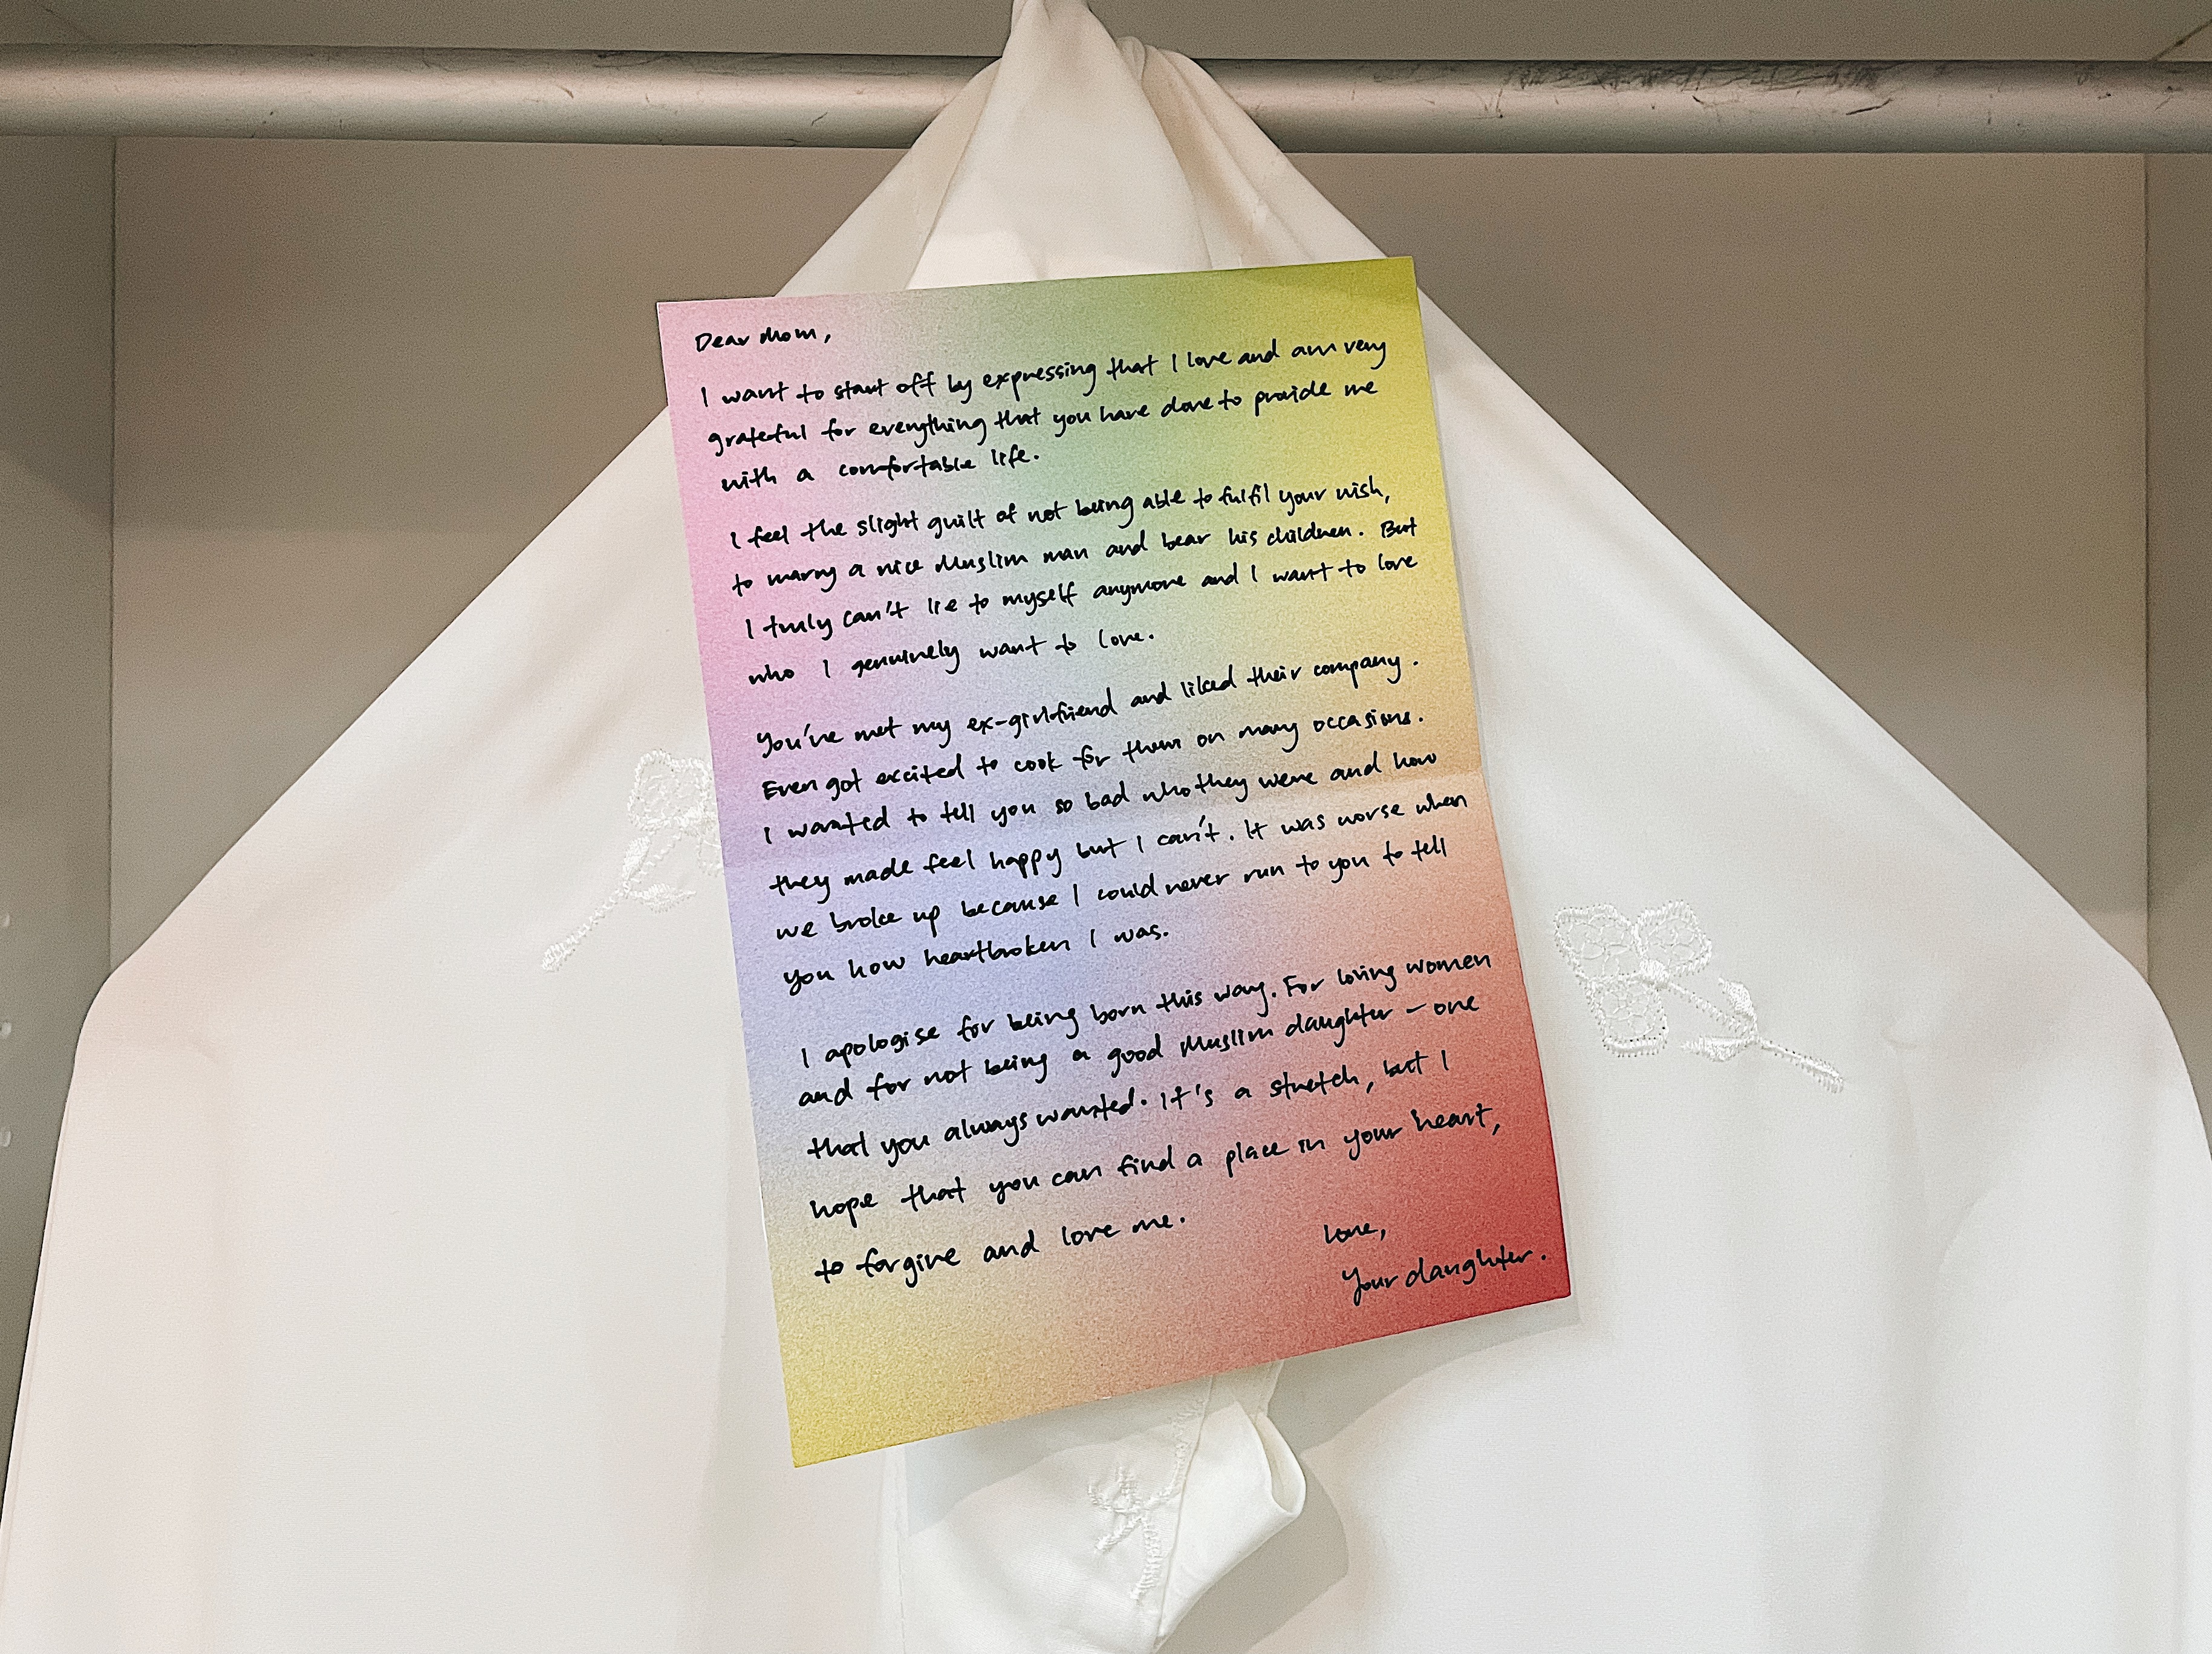 Dear Mom,
I want to start off by expressing that I love and am very
grateful for everything that you have done to provide me
with a comfortable life.
I feel the slight guilt of not being able to fulfil your wish,
to marry a nice Muslim man and bear his children. But
I truly can't lie to myself anymore and I want to love
who I genuinely want to love.
You've met my ex-girlfriend and liked their company.
Even got excited to cook for them on many occasions.
I wanted to tell you so bad who they were and how
they made feel happy but I can't. It was worse when
we broke up because I could never run to you to tell
you how heartbroken I was.
I apologise for being born this way. For loving women
and for not being a good Muslim daughter – one
that you always wanted. It's a stretch, but I
hope that you can find a place in your heart,
to forgive and love me.
Love,
Your daughter.